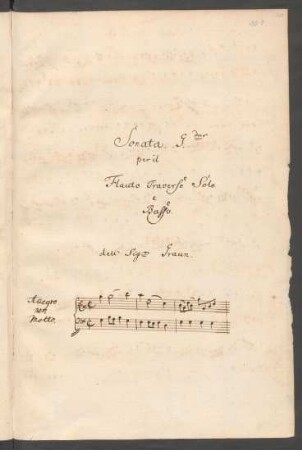 Sonata. G. dur
per il
Flauto Traverso Solo
e
Basso.
dell Sigr Graun.
Allegro
non
Molto.